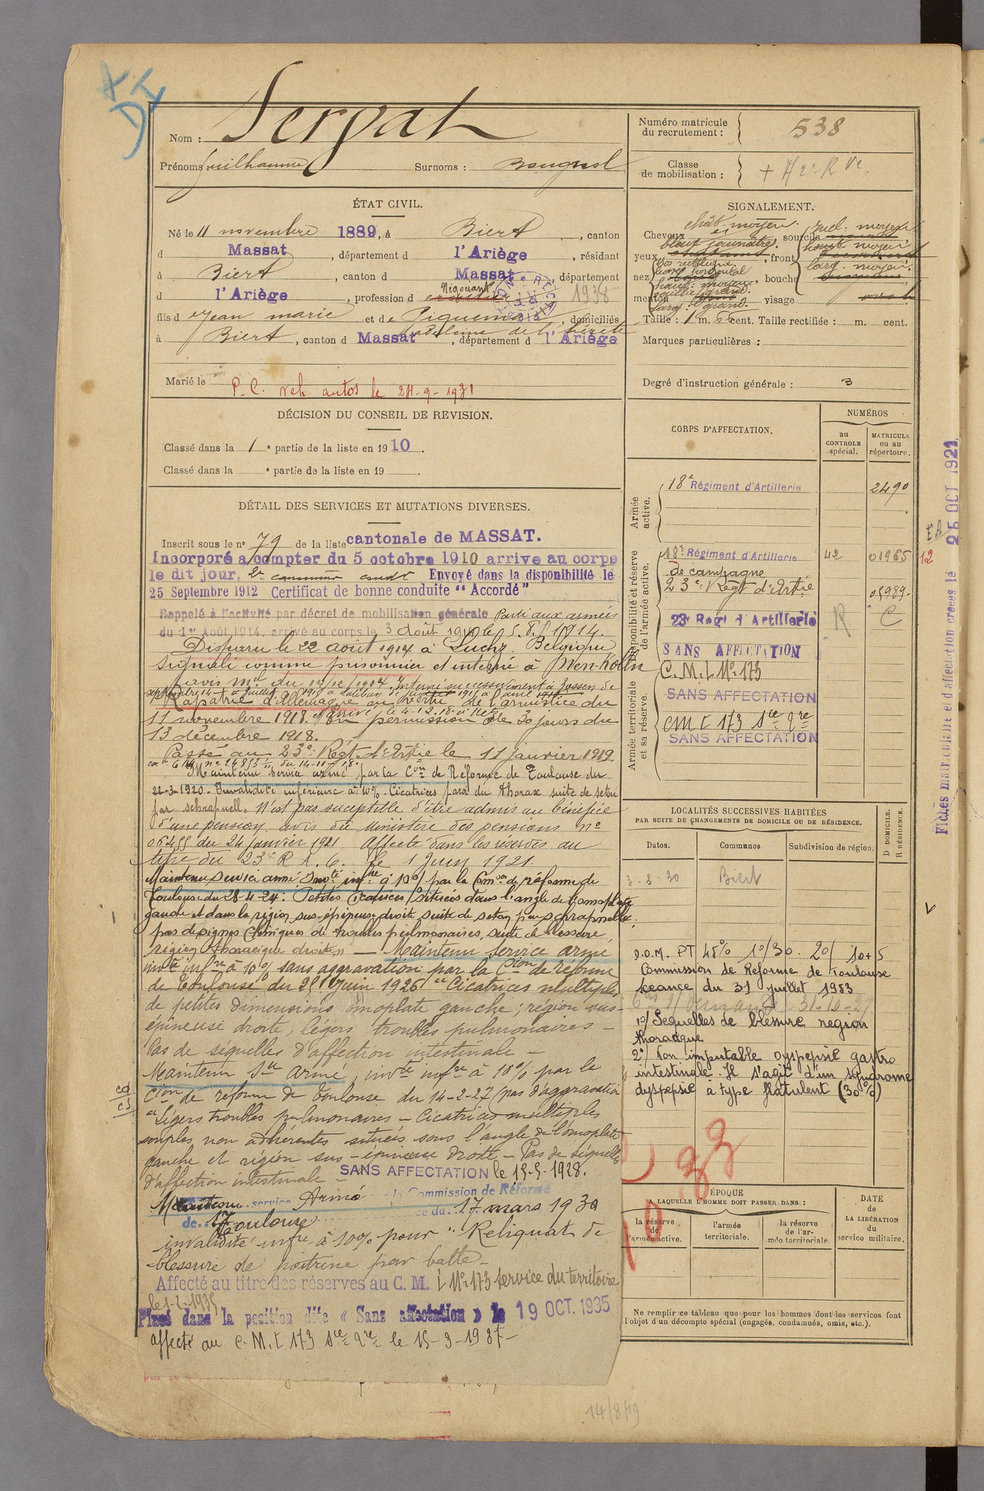 Nom : Servat
Prénoms Guilhaume Surnoms : Bougnol
Numéro matricule du recrutement : 538
Classe de mobilisation :
ÉTAT CIVIL.
Né le 11 novembre 1889, à Biert, canton
d Massat, département d l'Ariège, résidant
à Biert, canton d Massat, département
d l'Ariège, profession d Négociant 1938
fils d Jean marie et d e Piquemal, domiciliés
à Biert, canton d Massat, département d l'Ariège
Marié le
P. C. veh. autos le 24-9-1931
DÉCISION DU CONSEIL DE REVISION.
Classé dans la 1e partie de la liste en 1910.
Classé dans la e partie de la liste en 19
DÉTAIL DES SERVICES ET MUTATIONS DIVERSES.
Inscrit sous le n° 79 de la liste cantonale de MASSAT.
Incorporé à compter du 5 octobre 1910 arrive au corps
le dit jour, 2e Envoyé dans la disponibilité le
25 Septembre 1912 Certificat de bonne conduite "Accordé"
Rappelé à l'activité par décret de mobilisation générale Parti aux armées
du 1er Août 1914, arrivé au corps le 3 Août 1914 le 5.8.1914.
Disparu le 22 août 1914 à Luchy Belgique
Signalé comme prisonnier et interné à
avis Mel du 12/12/1914
Rapatrié d'Allemagne en vertu de l'armistice du
11 novembre 1918. permission de 30 jours du
13 décembre 1918.
Passé au 23e Regt d'Artie le 11 janvier 1919
Maintenu service armé par la Con de Réforme de Toulouse du
22-3-1920. Invalidité inférieure à 10%. Cicatrices parois du thorax suite de séton
par schrapnell. N'est pas susceptible d'être admis au bénéfice
d'une pension, avis du Ministère des pensions n°
06455 du 24 janvier 1921 affecté dans les réserves au
titre du 23e R.A.C. le 1 juin 1921.
Maintenu service armé Invté infre à 10% par la Comon de réforme de
Toulouse du 28-4-24. Petites Cicatrices situées dans l'angle de l'omoplate
gauche et dans la région sus-épineuse droite suite de séton par schrapnelle.
pas de signes cliniques de troubles pulmonaires, suite de blessure
région thoracique droite. — Maintenu service armé
invté infre à 10% sans aggravation par la Cion de réforme
de Toulouse du 28 juin 1926 "Cicatrices multiples
de petites dimensions omoplate gauche, région sus-
épineuse droite, légers troubles pulmonaires —
Pas de séquelles d'affection intestinale —
Maintenu Sce armé, invté infre à 10% par la
Cion de réforme de Toulouse du 14-2-27 pas d'aggravation
"Légers troubles pulmonaires — Cicatrices multiples
souples, non adhérentes situées sous l'angle de l'omoplate
gauche et région sus-épineuse droite — Pas de séquelles
d'affection intestinale — SANS AFFECTATION le 15-5-1928.
Maintenu service Armé la Commission de Réforme
de Toulouse du 17 mars 1930
invalidité infre à 10% pour "Reliquat de
blessure de poitrine par balle —
Affecté au titre des réserves au C. M. I N° 173 service du territoire
Placé dans la position dite « Sans affectation » le 19 OCT. 1935
affecté au C.M.I 173 le 15-9-1937 —
SIGNALEMENT.
Cheveux chât. moyen sourcils
yeux , front
nez , bouche
menton visage
Taille : 1 m. 66 cent. Taille rectifiée : m. cent.
Marques particulières :
Degré d'instruction générale : 3
CORPS D'AFFECTATION.
NUMÉROS
au CONTROLE spécial.
MATRICULE ou au répertoire.
Armée active.
18e Régiment d'Artillerie 2490
Disponibilité et réserve de l'armée active.
18e Régiment d'Artillerie 42 01965 12
de campagne
23e Regt d'Artie 05989
23e Regt d'Artillerie R C
SANS AFFECTATION
Armée territoriale et sa réserve.
C.M.I. N° 173
SANS AFFECTATION
CM I 173
SANS AFFECTATION
Fiches matricule et d'affectation créées le 25 OCT 1921
LOCALITÉS SUCCESSIVES HABITÉES
PAR SUITE DE CHANGEMENTS DE DOMICILE OU DE RÉSIDENCE.
Dates. Communes Subdivision de région. D DOMICILE. R RÉSIDENCE.
3-3-30 Biert
D.O.M. PT 45% 1°/30 2°/10+5
Commission de Réforme de Toulouse
séance du 31 juillet 1933
1°/ Séquelles de blessure région
thoracique
2°/ Non imputable dyspepsie gastro
intestinale. Il s'agit d'un syndrome
dyspepsie à type flatulent (30%)
ÉPOQUE
A LAQUELLE L'HOMME DOIT PASSER DANS :
la réserve de l'armée active.
l'armée territoriale.
la réserve de l'armée territoriale.
DATE DE LA LIBÉRATION du service militaire.
Ne remplir ce tableau que pour les hommes dont les services font
l'objet d'un décompte spécial (engagés, condamnés, omis, etc.).
14/8/19